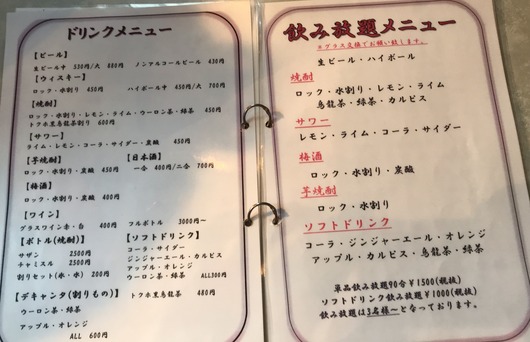 ドリンクメニュー
【ビール】
生ビール中 530円/大 880円 ノンアルコールビール 430円
【ウィスキー】
ロック・水割り 450円 ハイボール中 450円/大 700円
【焼酎】
ロック・水割り・レモン・ライム・ウーロン茶・緑茶 450円
トクホ黒烏龍茶割り 600円
【サワー】
ライム・レモン・コーラ・サイダー 450円
【芋焼酎】
ロック・水割り・炭酸 450円
【日本酒】
一合 400円/二合 700円
【梅酒】
ロック・水割り・炭酸 400円
【ワイン】
グラスワイン赤・白 400円 フルボトル 3000円~
【ボトル(焼酎)】
サザン 2500円
チャミスル 2500円
割りセット(氷・水) 200円
【ソフトドリンク】
コーラ・サイダー
ジンジャーエール・カルピス
アップル・オレンジ
ウーロン茶・緑茶 ALL300円
【デキャンタ(割りもの)】
ウーロン茶・緑茶
アップル・オレンジ
ALL 600円
トクホ黒烏龍茶 480円
飲み放題メニュー
※グラス交換でお願い致します。
生ビール・ハイボール
焼酎
ロック・水割り・レモン・ライム
烏龍茶・緑茶・カルピス
サワー
レモン・ライム・コーラ・サイダー
梅酒
ロック・水割り・炭酸
芋焼酎
ロック・水割り
ソフトドリンク
コーラ・ジンジャーエール・オレンジ
アップル・カルピス・烏龍茶・緑茶
単品飲み放題90分¥1500(税抜)
ソフトドリンク飲み放題¥1000(税抜)
飲み放題は3名様~となっております。